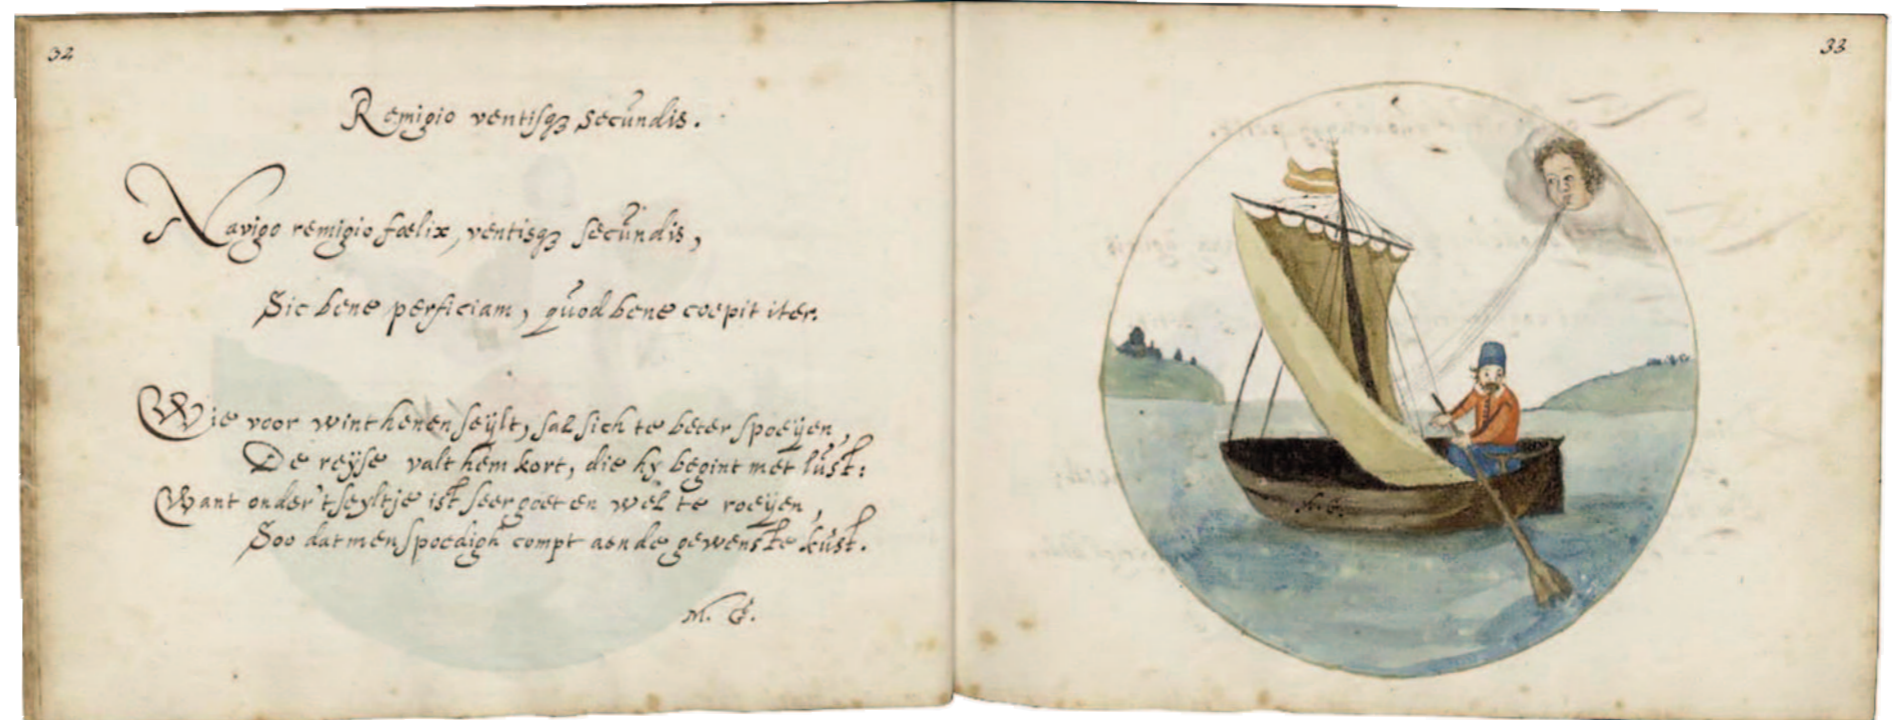 32
Remigio ventisqꝫ secundis.
Navigo remigio fœlix, ventisqꝫ secundis,
Sic bene perficiam, quod bene coepit iter.
Wie voor wint henen seijlt, sal sich te beter spoeijen,
De reijse valt hem kort, die hy begint met lust:
Want onder 't seyltje ist seer goet en wel te roeijen,
Soo dat men spoedigh compt aen de gewenste kust.
M. G.
33
M. G.